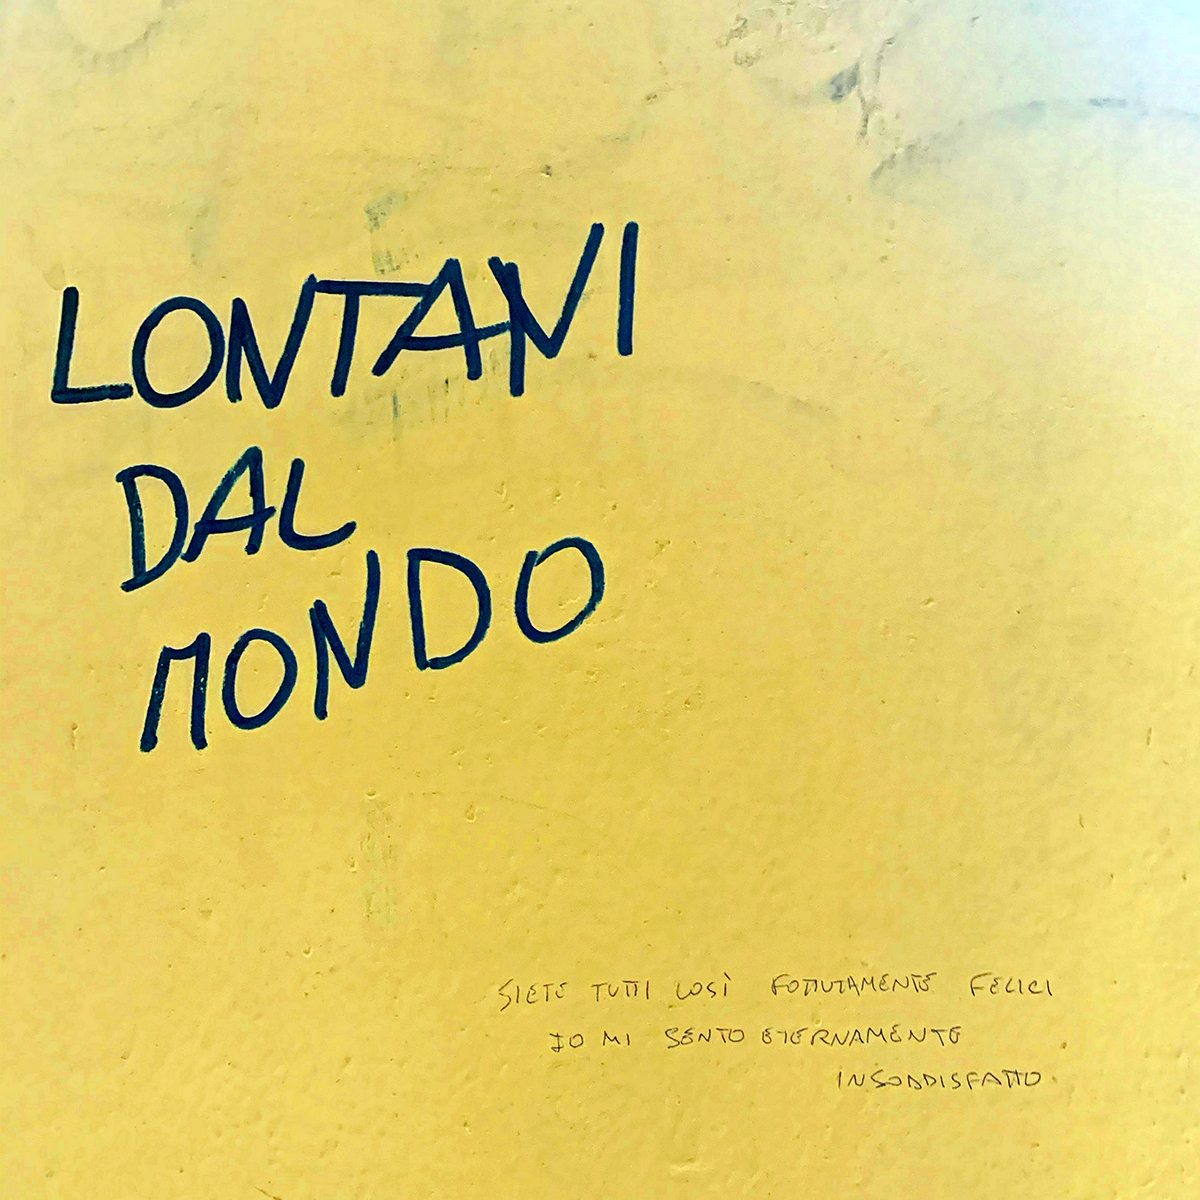 LONTANI
DAL
MONDO
SIETE TUTTI COSÌ FOTTUTAMENTE FELICI
IO MI SENTO ETERNAMENTE
INSODDISFATTO.